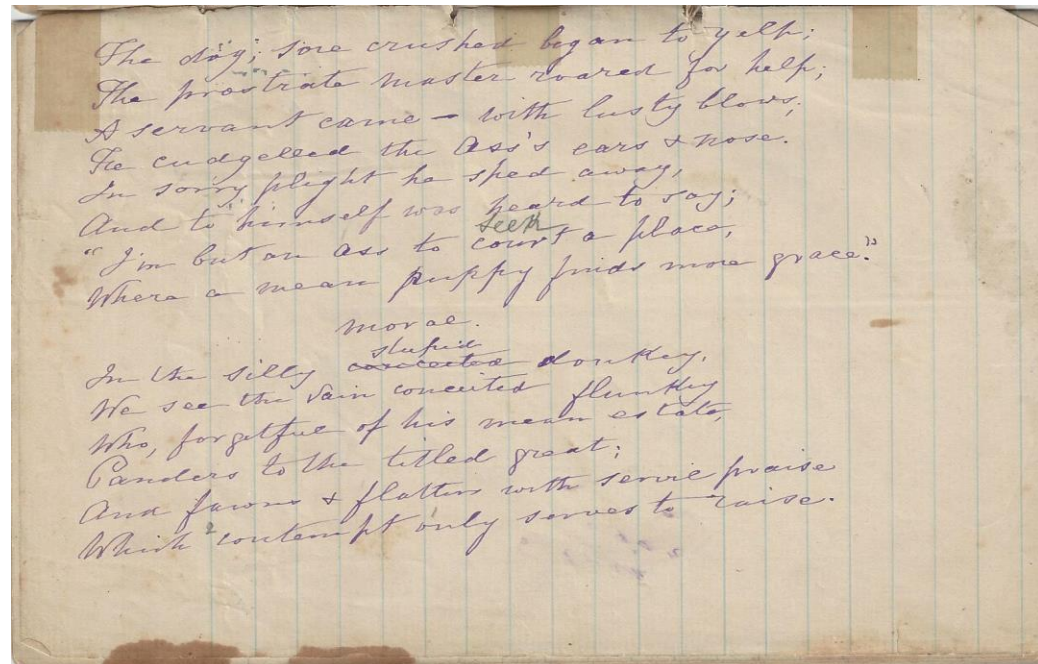 The dog; sore crushed began to yelp;
The prostrate master roared for help;
A servant came – with lusty blows;
He cudgelled the Ass's ears & nose.
In sorry plight he sped away,
And to himself was heard to say;
seek
"I'm but an Ass to court a place,
Where a mean puppy finds more grace."
moral.
stupid
In the silly conceited donkey,
We see the vain conceited flunkey
Who, forgetful of his mean estate,
Panders to the titled great;
And fawns & flatters with servile praise
Which contempt only serves to raise.